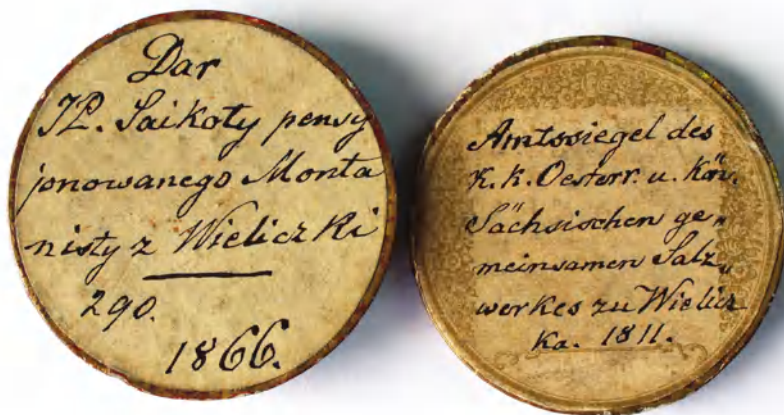 Dar
JP. Saikoty pensy
jonowanego Monta
nisty z Wieliczki
290.
1866.
Amtssiegel des
K. k. Oesterr. u. Kön.
Sächsischen ge„
meinsamen Salz„
werkes zu Wielicz
ka. 1811.